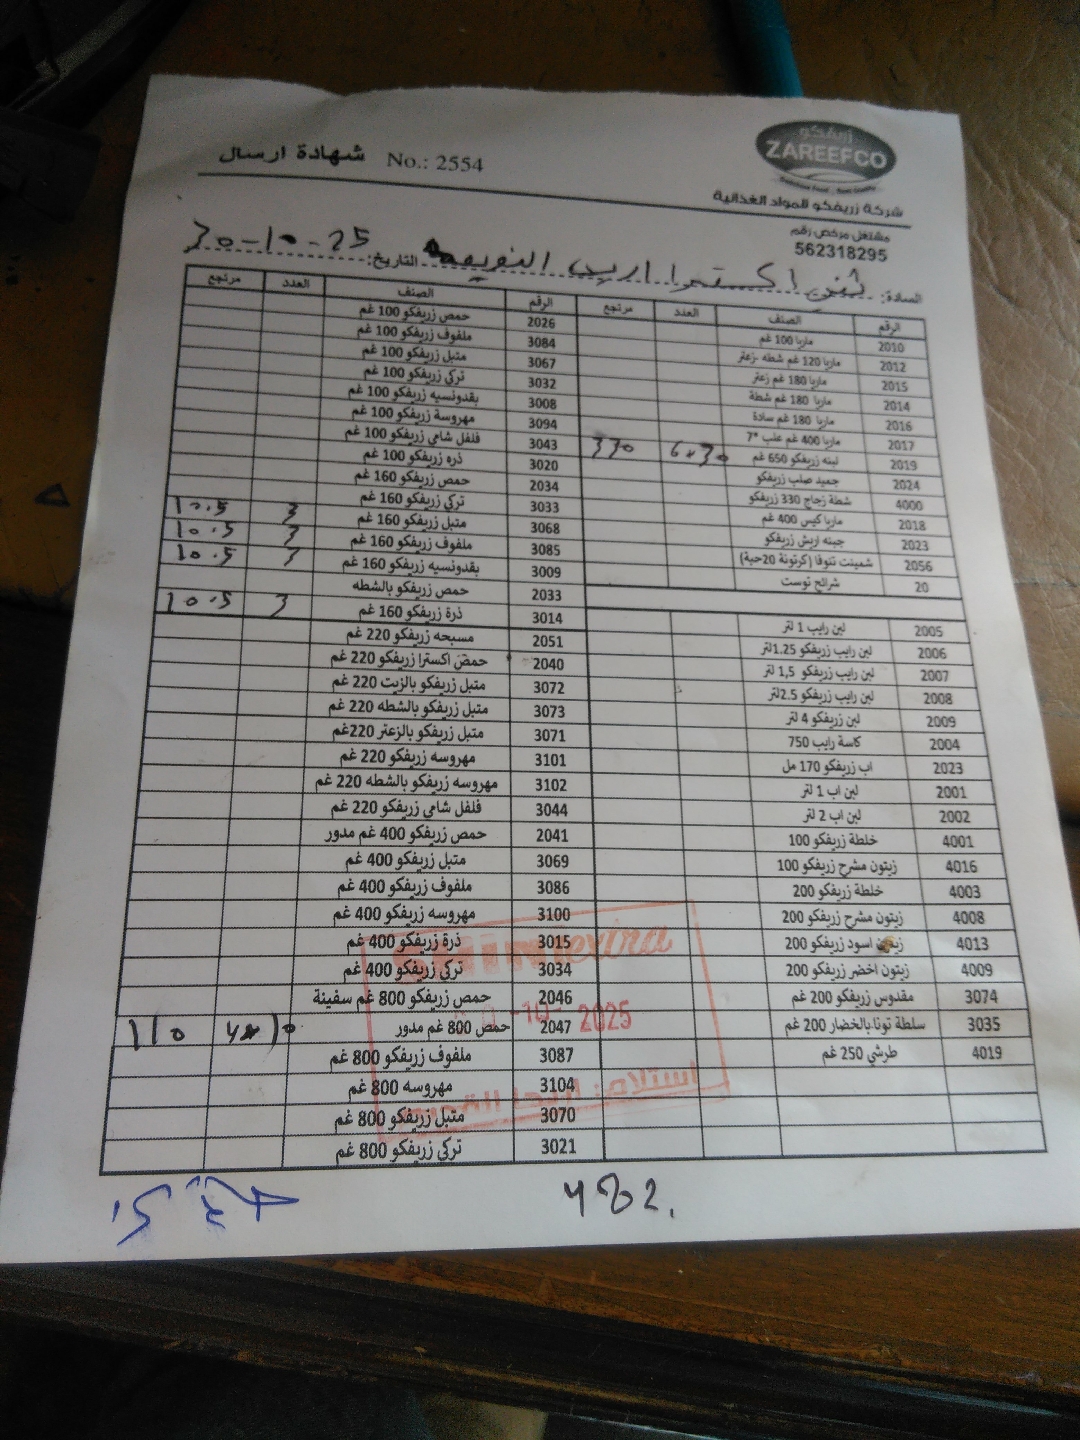 زريفكو
ZAREEFCO
شهادة ارسال No.: 2554
شركة زريفكو للمواد الغذائية
مشتغل مرخص رقم
562318295
السادة: التاريخ: 30-10-25
الرقم الصنف العدد مرتجع الرقم الصنف العدد مرتجع
2010 ماريا 100 غم
2012 ماريا 120 غم شطه -زعتر
2015 ماريا 180 غم زعتر
2014 ماريا 180 غم شطة
2016 ماريا 180 غم سادة
2017 ماريا 400 غم علب *7
2019 لبنه زريفكو 650 غم 6×30 330
2024 جميد صلب زريفكو
4000 شطة زجاج 330 زريفكو
2018 ماريا كيس 400 غم
2023 جبنه اريش زريفكو
2056 شمينت تنوفا (كرتونة 20حبة)
20 شرائح توست
2005 لبن رايب 1 لتر
2006 لبن رايب زريفكو 1.25لتر
2007 لبن رايب زريفكو 1,5 لتر
2008 لبن رايب زريفكو 2.5لتر
2009 لبن زريفكو 4 لتر
2004 كاسة رايب 750
2023 اب زريفكو 170 مل
2001 لبن اب 1 لتر
2002 لبن اب 2 لتر
4001 خلطة زريفكو 100
4016 زيتون مشرح زريفكو 100
4003 خلطة زريفكو 200
4008 زيتون مشرح زريفكو 200
4013 زيتون اسود زريفكو 200
4009 زيتون اخضر زريفكو 200
3074 مقدوس زريفكو 200 غم
3035 سلطة تونا بالخضار 200 غم
4019 طرشي 250 غم
2026 حمص زريفكو 100 غم
3084 ملفوف زريفكو 100 غم
3067 متبل زريفكو 100 غم
3032 تركي زريفكو 100 غم
3008 بقدونسيه زريفكو 100 غم
3094 مهروسة زريفكو 100 غم
3043 فلفل شامي زريفكو 100 غم
3020 ذره زريفكو 100 غم
2034 حمص زريفكو 160 غم
3033 تركي زريفكو 160 غم 3 10.5
3068 متبل زريفكو 160 غم 3 10.5
3085 ملفوف زريفكو 160 غم 3 10.5
3009 بقدونسيه زريفكو 160 غم
2033 حمص زريفكو بالشطه
3014 ذرة زريفكو 160 غم 3 10.5
2051 مسبحه زريفكو 220 غم
2040 حمص اكسترا زريفكو 220 غم
3072 متبل زريفكو بالزيت 220 غم
3073 متبل زريفكو بالشطه 220 غم
3071 متبل زريفكو بالزعتر 220غم
3101 مهروسه زريفكو 220 غم
3102 مهروسه زريفكو بالشطه 220 غم
3044 فلفل شامي زريفكو 220 غم
2041 حمص زريفكو 400 غم مدور
3069 متبل زريفكو 400 غم
3086 ملفوف زريفكو 400 غم
3100 مهروسه زريفكو 400 غم
3015 ذرة زريفكو 400 غم
3034 تركي زريفكو 400 غم
2046 حمص زريفكو 800 غم سفينة
2047 حمص 800 غم مدور 110
3087 ملفوف زريفكو 800 غم
3104 مهروسه 800 غم
3070 متبل زريفكو 800 غم
3021 تركي زريفكو 800 غم
extra
-10- 2025
482.